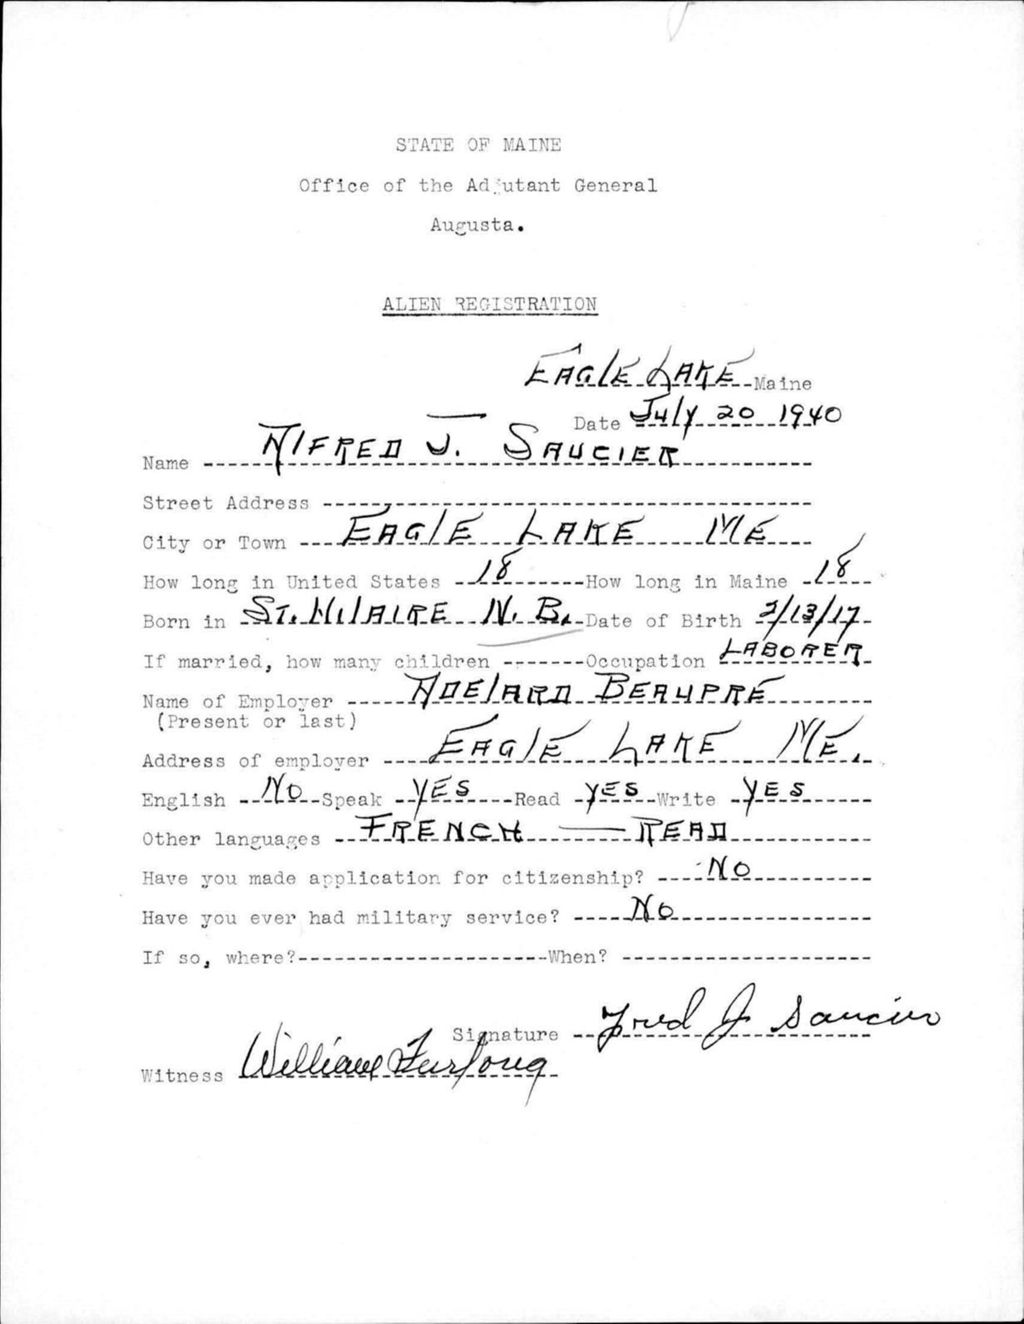 STATE OF MAINE
Office of the Adjutant General
Augusta.
ALIEN REGISTRATION
EAGLE LAKE Maine
Date July 20 1940
Name AlFRED J. SAUCIER
Street Address
City or Town EAGLE LAKE ME
How long in United States 18 How long in Maine 18
Born in ST. HILAIRE N. B. Date of Birth /13/17
If married, how many children Occupation LABORER
Name of Employer ADELARD BEAUPRÉ
(Present or last)
Address of employer EAGLE LAKE ME.
English No Speak YES Read YES Write YES
Other languages FRENCH — READ
Have you made application for citizenship? No
Have you ever had military service? No
If so, where? When?
Signature Fred J Saucier
Witness William Furlong